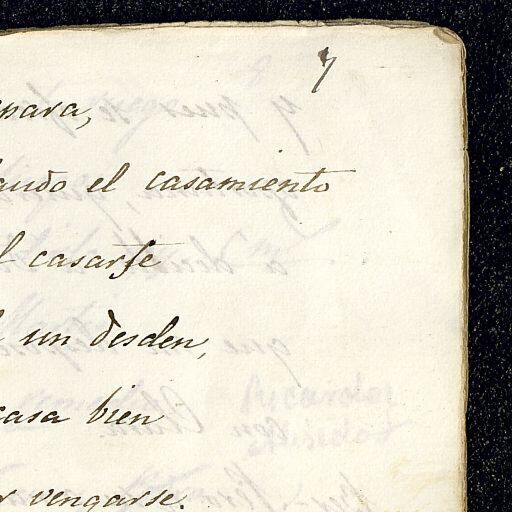 7
para,
ando el casamiento
l casarse
un desden,
casa bien
r vengarse.